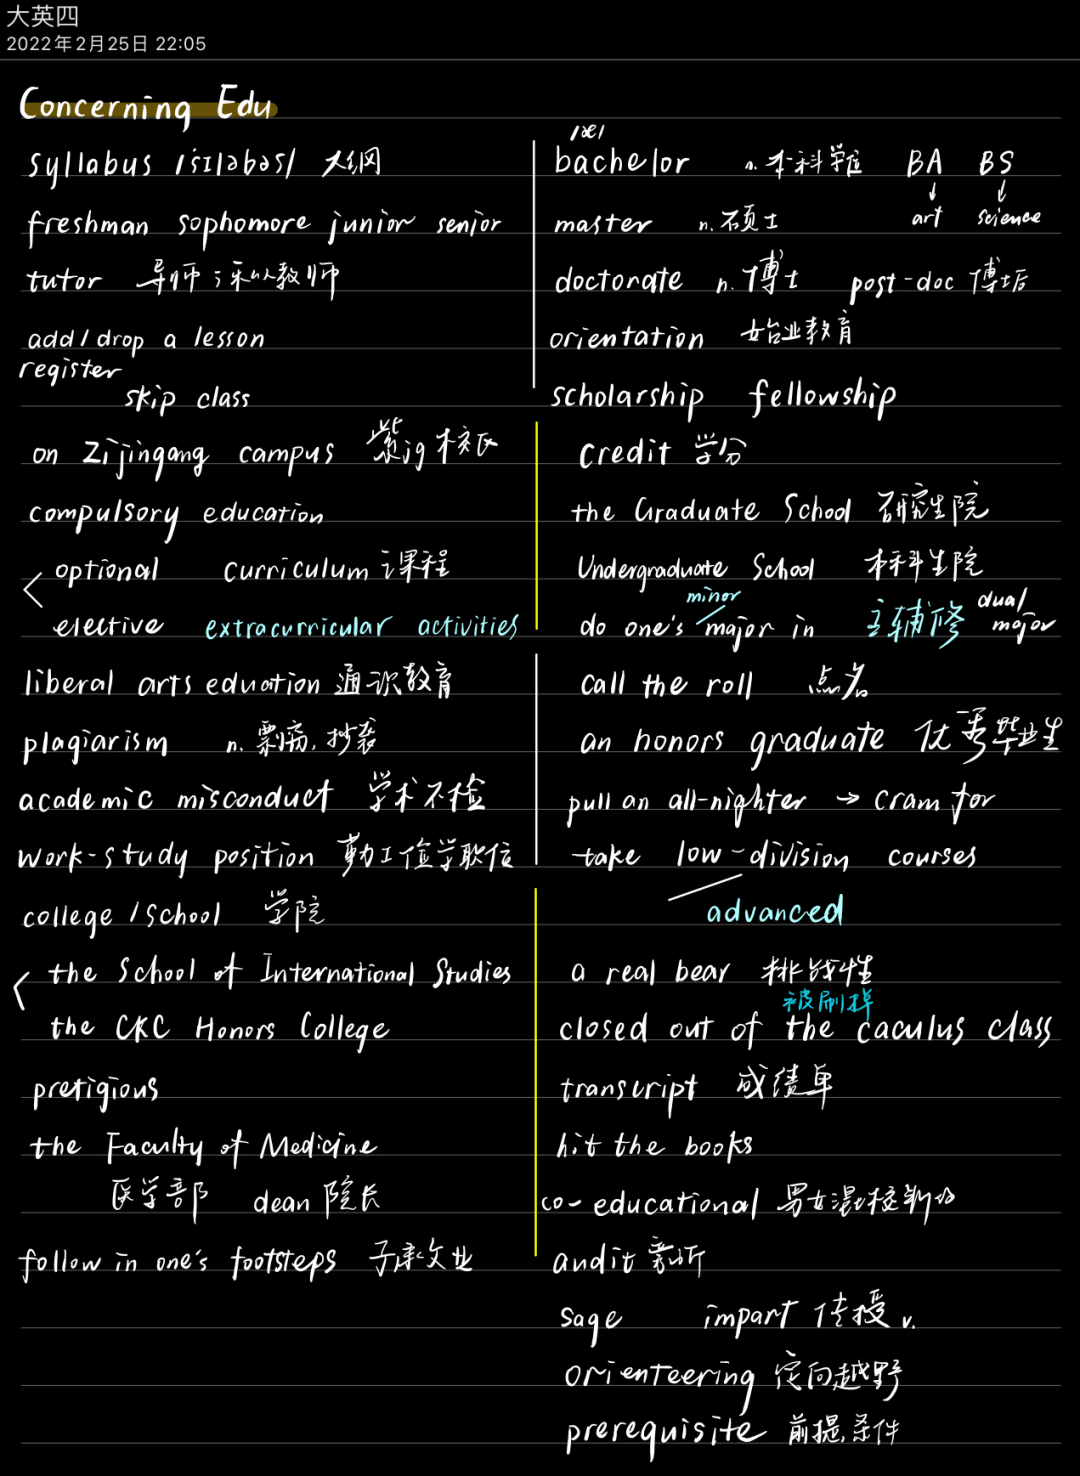 大英四
2022年2月25日 22:05
Concerning Edu
syllabus /sɪləbəs/ 大纲
freshman sophomore junior senior
tutor 导师；私人教师
add/drop a lesson
register
skip class
on Zijingang campus 紫jg校区
compulsory education
optional curriculum 课程
elective extracurricular activities
liberal arts eduation 通识教育
plagiarism n. 剽窃，抄袭
academic misconduct 学术不检
work-study position 勤工俭学职位
college / School 学院
the School of International Studies
the CKC Honors College
pretigious
the Faculty of Medicine
医学部 dean 院长
follow in one's footsteps 子承父业
/æ/
bachelor n. 本科学位 BA BS
art science
master n. 硕士
doctorate n. 博士 post-doc 博士后
orientation 始业教育
scholarship fellowship
credit 学分
the Graduate School 研究生院
Undergraduate School 本科生院
minor
do one's major in 主辅修 dual major
call the roll 点名
an honors graduate 优秀毕业生
pull an all-nighter → cram for
take low-division courses
advanced
a real bear 挑战性
被刷掉
closed out of the caculus class
transcript 成绩单
hit the books
co-educational 男女混校制的
audit 旁听
sage impart 传授 v.
orienteering 定向越野
prerequisite 前提，条件